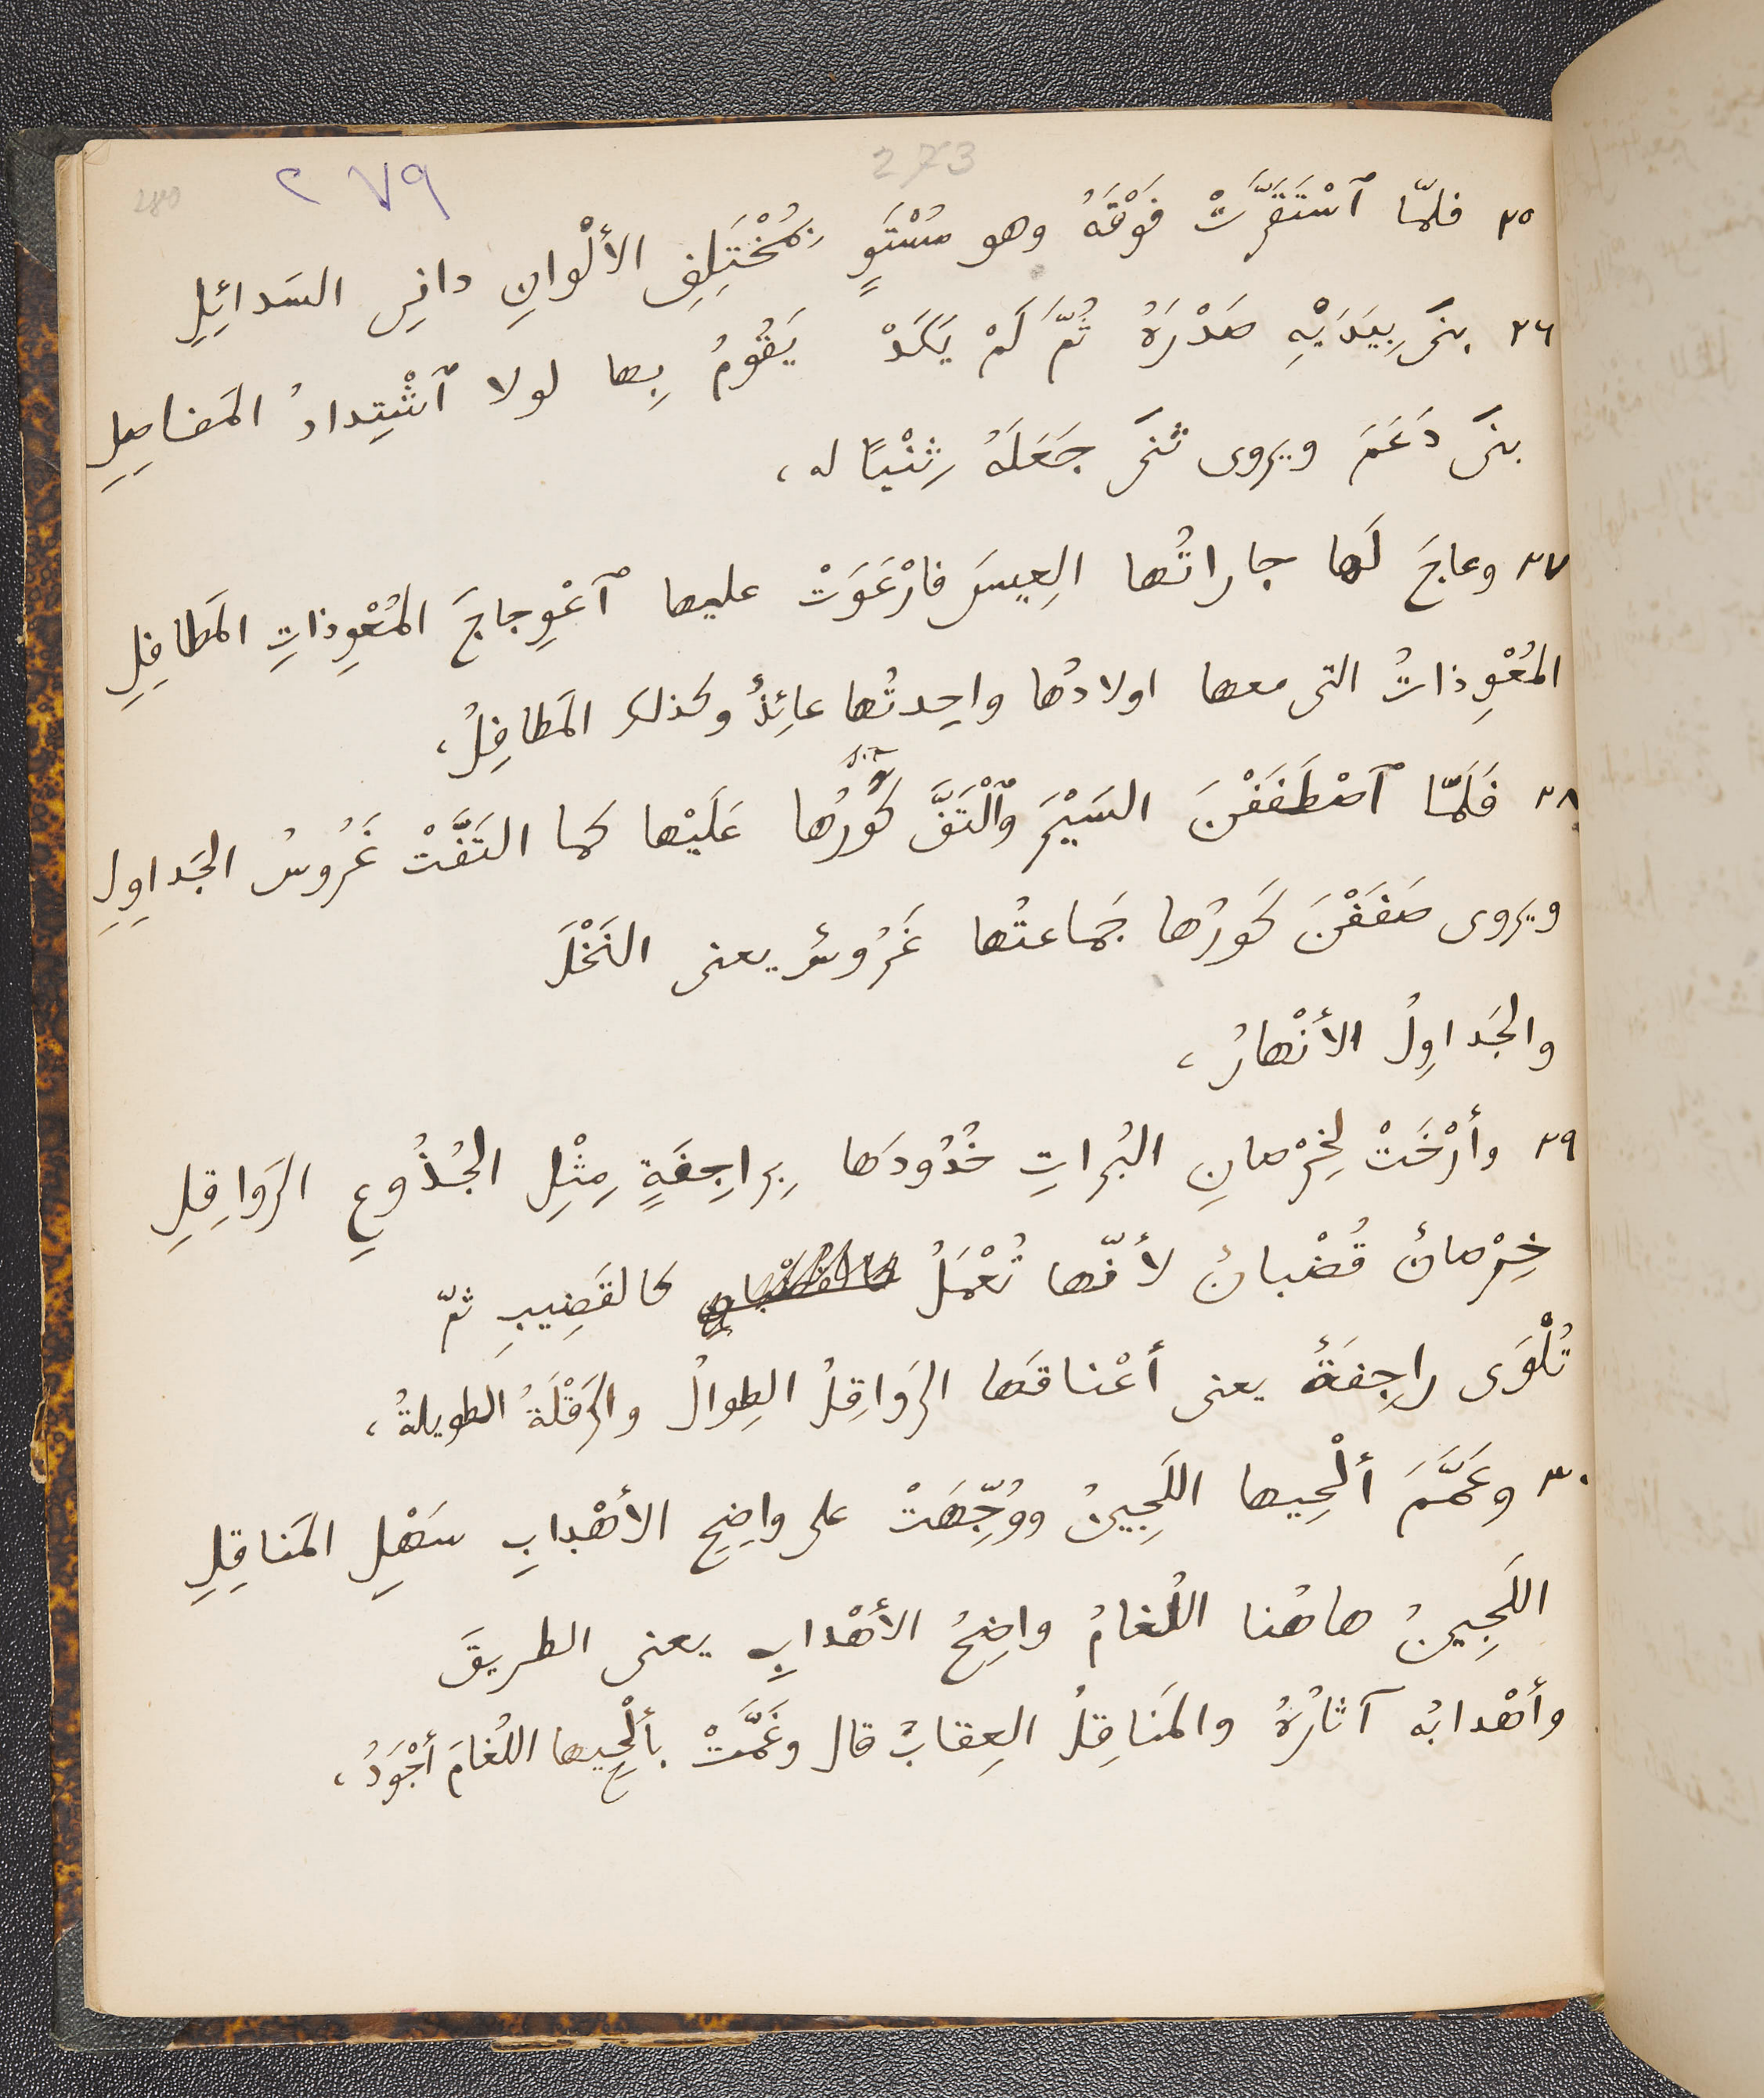 280
٢٧٩
273
٢٥ فلمّا ٱسْتَقَرَّتْ فَوْقَهُ وهو مُسْتَوٍ بِمُخْتَلِفِ الأَلْوانِ دانِى السَدائِلِ
٢٦ بنَى بِيَدَيْهِ صَدْرَهُ ثُمَّ لَمْ يَكَدْ يَقُومُ بِها لولا ٱشْتِدادُ المَفاصِلِ
بنَى دَعَمَ ويروى ثَنَى جَعَلَهُ ثِنْيًا له ،
٢٧ وعاجَ لَها جاراتُها العِيسَ فارْعَوَتْ عليها ٱعْوِجاجَ المُعْوِذاتِ المَطافِلِ
المُعْوِذاتُ التى معها اولادُها واحِدتُها عائِذٌ وكذلك المَطافِلُ ،
٢٨ فَلَمّا ٱصْطَفَفْنَ السَيْرَ وٱلْتَفَّ كَوْرُها عَلَيْها كما التَفَّتْ غَرُوسُ الجَداوِلِ
ويروى صَفَفْنَ كَورُها جَماعتُها غَرُوسٌ يعنى النَخْلَ
والجَداوِلُ الأَنْهارُ ،
٢٩ وأَرْخَتْ لِخِرْصانِ البُراتِ خُدُودَها بِراجِفَةٍ مِثْلِ الجُذُوعِ الرَواقِلِ
خِرْصانٌ قُضْبانٌ لأَنّها تُعْمَلُ كالقَضِيبِ ثمّ
تُلْوَى راجِفَةٌ يعنى أَعْناقَها الرَواقِلُ الطِوالُ والرَقْلَةُ الطويلةُ ،
٣٠ وغَمَّمَ أَلْحِيها اللَجِينُ ووُجِّهَتْ على واضِحِ الأَهْدابِ سَهْلِ المَناقِلِ
اللَجِينُ هاهُنا اللُغامُ واضِحُ الأَهْدابِ يعنى الطريقَ
وأَهْدابُه آثارُهُ والمَناقِلُ العِقابُ قال وغَمَّتْ بأَلْحِيها اللُغامَ أَجْوَدُ ،